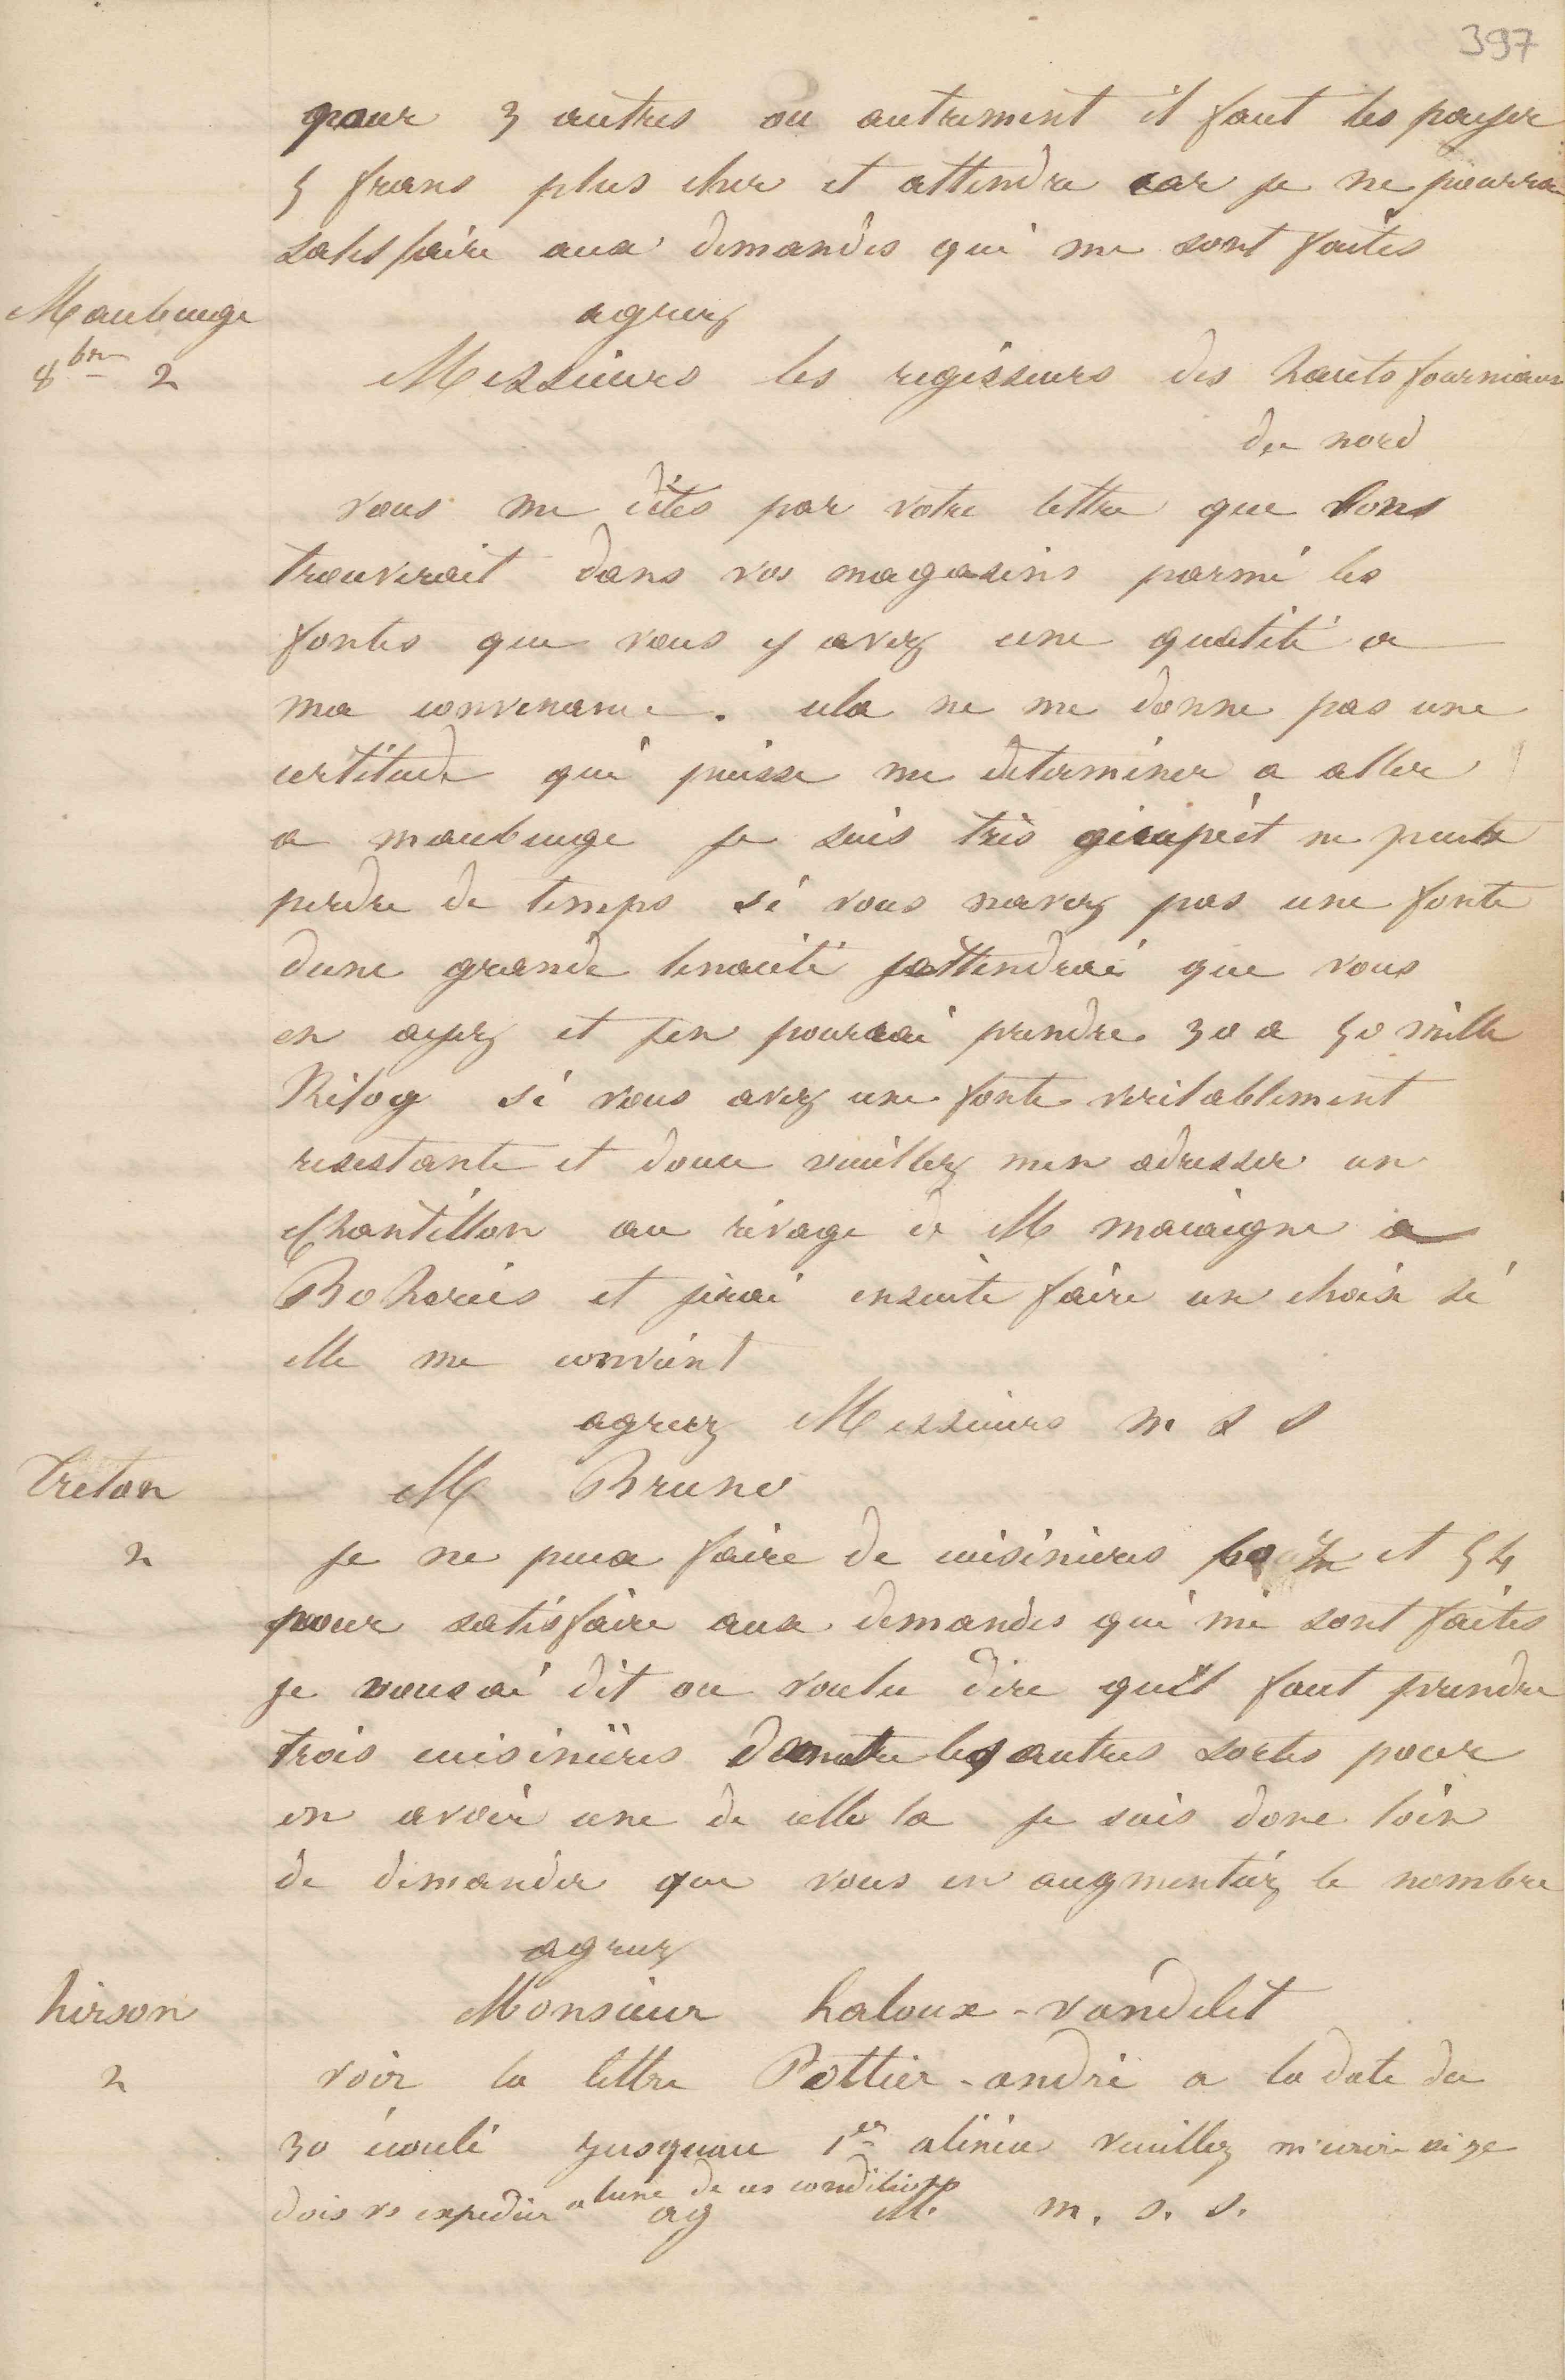 397
pour 3 autres ou autrement il faut les payer
5 frans plus cher et attendre car je ne pourrai
satisfaire aux demandes qui me sont faites
agreez
Maubeuge
8bre 2
Messieurs les regisseurs des hauts fourneaux
du nord
vous me dites par votre lettre que lons
trouverait dans vos magasins parmi les
fontes que vous y avez une qualité a
ma convenance. cela ne me donne pas une
certitude qui puisse me determiner a aller
a maubeuge je suis très ne peux
perdre de temps si vous navez pas une fonte
dune grande tenacité jattendrai que vous
en ayez et jen pourrai prendre 30 a 50 mille
Kilog si vous avez une fonte veritablement
resistante et douce veuillez men adresser un
echantillon au rivage de M macaigne a
Boheries et jirai ensuite faire un choix si
elle me convient
agreez Messieurs m s s
trelon
2
M Bruno
je ne peux faire de cuisinieres et 54
pour satisfaire aux demandes qui me sont faites
je vous ai dit ou voulu dire quil faut prendre
trois cuisinières les autres sortes pour
en avoir une de celle la je suis donc loin
de demander que vous en augmentiez le nombre
agreez
hirson
2
Monsieur haloux-vandelet
voir la lettre Pottier-andré a la date du
30 écoulé jusquau 1er alinéa veuillez m'ecrire si je
dois vs expedier a lune de ces conditions
ag M. m. s. s.